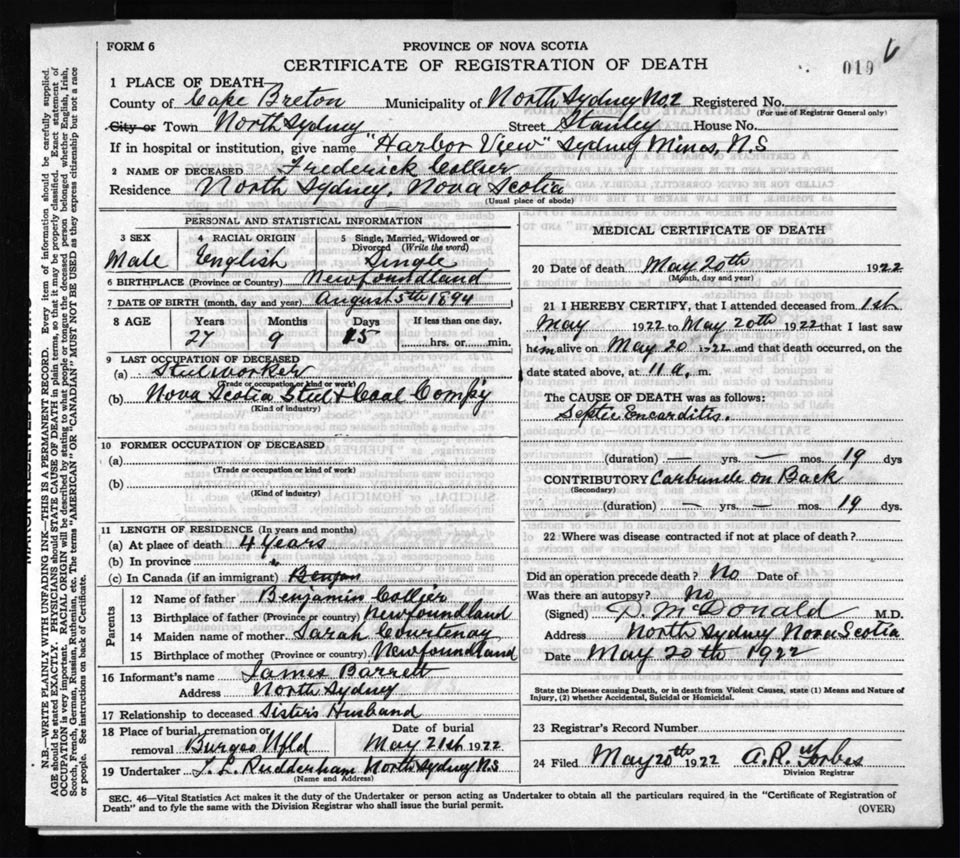 FORM 6
PROVINCE OF NOVA SCOTIA
CERTIFICATE OF REGISTRATION OF DEATH
019
1 PLACE OF DEATH
County of Cape Breton Municipality of North Sydney No. 2 Registered No.
(For use of Registrar General only)
City or Town North Sydney Street Stanley House No.
If in hospital or institution, give name "Harbor View" Sydney Mines, N.S
2 NAME OF DECEASED Frederick Collier
Residence North Sydney, Nova Scotia
(Usual place of abode)
PERSONAL AND STATISTICAL INFORMATION
3 SEX Male
4 RACIAL ORIGIN English
5 Single, Married, Widowed or Divorced (Write the word) Single
6 BIRTHPLACE (Province or Country) Newfoundland
7 DATE OF BIRTH (month, day and year) August 5th 1894
8 AGE Years 27 Months 9 Days 15 If less than one day, hrs. or min.
9 LAST OCCUPATION OF DECEASED
(a) Steelworker
(Trade or occupation or kind or work)
(b) Nova Scotia Steel & Coal Comp'y
(Kind of industry)
10 FORMER OCCUPATION OF DECEASED
(a)
(Trade or occupation or kind of work)
(b)
(Kind of industry)
11 LENGTH OF RESIDENCE (In years and months)
(a) At place of death 4 Years
(b) In province "
(c) In Canada (if an immigrant)
Parents
12 Name of father Benjamin Collier
13 Birthplace of father (Province or country) Newfoundland
14 Maiden name of mother Sarah Courtenay
15 Birthplace of mother (Province or country) Newfoundland
16 Informant's name James Barrett
Address North Sydney
17 Relationship to deceased Sister's Husband
18 Place of burial, cremation or removal Burgeo Nfld
Date of burial May 21st 1922
19 Undertaker T. L. Rudderham North Sydney N.S
(Name and Address)
MEDICAL CERTIFICATE OF DEATH
20 Date of death May 20th 1922
(Month, day and year)
21 I HEREBY CERTIFY, that I attended deceased from 1st
May 1922 to May 20th 1922 that I last saw
him alive on May 20 1922 and that death occurred, on the
date stated above, at 11 a. m.
The CAUSE OF DEATH was as follows:
Septic Encarditis.
(duration) — yrs. — mos. 19 dys
CONTRIBUTORY Carbuncle on Back
(Secondary)
(duration) — yrs. — mos. 19 dys.
22 Where was disease contracted if not at place of death?
Did an operation precede death? No Date of
Was there an autopsy? No
(Signed) D. McDonald M.D.
Address North Sydney Nova Scotia
Date May 20th 1922
State the Disease causing Death, or in death from Violent Causes, state (1) Means and Nature of
Injury, (2) whether Accidental, Suicidal or Homicidal.
23 Registrar's Record Number
24 Filed May 20th 1922 A.R. Forbes
Division Registrar
SEC. 46—Vital Statistics Act makes it the duty of the Undertaker or person acting as Undertaker to obtain all the particulars required in the "Certificate of Registration of
Death" and to fyle the same with the Division Registrar who shall issue the burial permit.
(OVER)
N.B.—WRITE PLAINLY WITH UNFADING INK—THIS IS A PERMANENT RECORD. Every item of information should be carefully supplied.
AGE should be stated EXACTLY. PHYSICIANS should STATE CAUSE OF DEATH in plain terms, so that it may be properly classified. Exact statement of
OCCUPATION is very important. RACIAL ORIGIN will be described by stating to what people or tongue the deceased person belonged whether English, Irish,
Scotch, French, German, Russian, Ruthenian, etc. The terms "AMERICAN" OR "CANADIAN" MUST NOT BE USED as they express citizenship but not a race
or people. See instructions on back of Certificate.